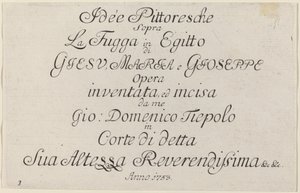 Idée Pittoresche
Sopra
La Fugga in Egitto
di
GIESV, MARIA e GIOSEPPE
Opera
inventata, ed incisa
da me
Gio: Domenico Tiepolo
in
Corte di detta
Sua Altezza Reverendissima &c. &c.
Anno 1753.
1